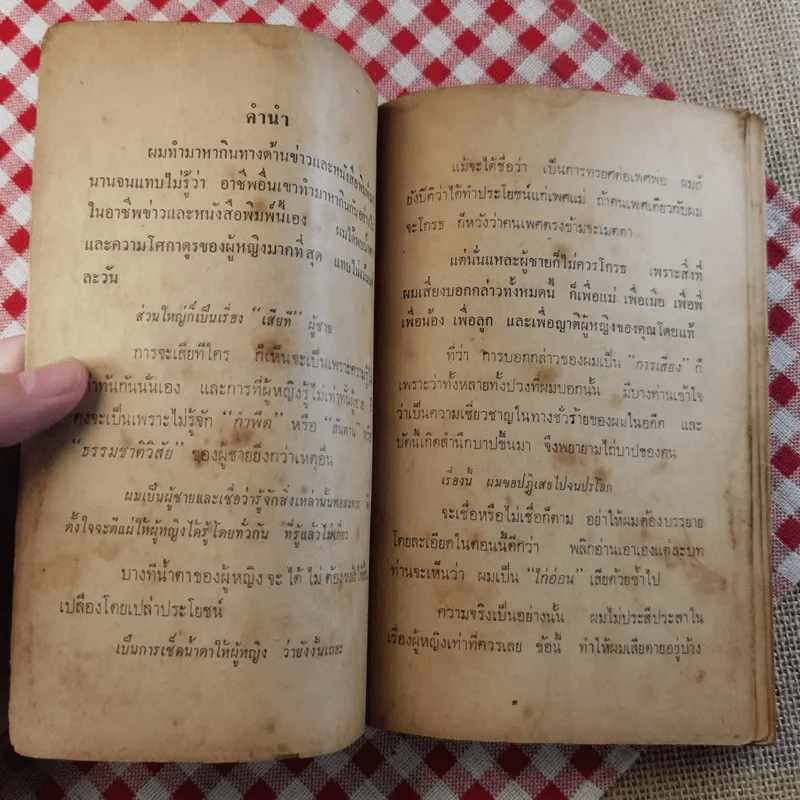 คำนำ
ผมทำมาหากินทางด้านข่าวและหนังสือพิมพ์
นานจนแทบไม่รู้ว่า อาชีพอื่นเขาทำมาหากินกันอย่างไร
ในอาชีพข่าวและหนังสือพิมพ์นี้เอง ผมได้พบ
และความโศกาดูรของผู้หญิงมากที่สุด แทบไม่เว้น
ละวัน
ส่วนใหญ่ก็เป็นเรื่อง “เสียที” ผู้ชาย
การจะเสียทีใคร ก็เห็นจะเป็นเพราะความรู้
เท่าทันกันนั่นเอง และการที่ผู้หญิงรู้ไม่เท่าทันผู้ชาย
คงจะเป็นเพราะไม่รู้จัก “กำพืด” หรือ “สันดาน”
“ธรรมชาติวิสัย” ของผู้ชายยิ่งกว่าเหตุอื่น
ผมเป็นผู้ชายและเชื่อว่ารู้จักสิ่งเหล่านั้นพอสมควร
ตั้งใจจะตีแผ่ให้ผู้หญิงได้รู้โดยทั่วกัน ที่รู้แล้วไม่เกี่ยว
บางทีน้ำตาของผู้หญิง จะ ได้ ไม่ ต้อง
เปลืองโดยเปล่าประโยชน์
เป็นการเช็ดน้ำตาให้ผู้หญิง ว่ายังงั้นเถอะ
แม้จะได้ชื่อว่า เป็นการทรยศต่อเพศพ่อ ผมก็
ยังปีติว่าได้ทำประโยชน์แก่เพศแม่ ถ้าคนเพศเดียวกับผม
จะโกรธ ก็หวังว่าคนเพศตรงข้ามจะเมตตา
แต่นั่นแหละผู้ชายก็ไม่ควรโกรธ เพราะสิ่งที่
ผมเสี่ยงบอกกล่าวทั้งหมดนี้ ก็เพื่อแม่ เพื่อเมีย เพื่อพี่
เพื่อน้อง เพื่อลูก และเพื่อญาติผู้หญิงของคุณโดยแท้
ที่ว่า การบอกกล่าวของผมเป็น “การเสี่ยง” ก็
เพราะว่าทั้งหลายทั้งปวงที่ผมบอกนั้น มีบางท่านเข้าใจ
ว่าเป็นความเชี่ยวชาญในทางชั่วร้ายของผมในอดีต และ
บัดนี้เกิดสำนึกบาปขึ้นมา จึงพยายามไถ่บาปของตน
เรื่องนี้ ผมขอปฏิเสธไปจนปรโลก
จะเชื่อหรือไม่เชื่อก็ตาม อย่าให้ผมต้องบรรยาย
โดยละเอียดในตอนนี้ดีกว่า พลิกอ่านเอาเองแต่ละบท
ท่านจะเห็นว่า ผมเป็น “ไก่อ่อน” เสียด้วยซ้ำไป
ความจริงเป็นอย่างนั้น ผมไม่ประสีประสาใน
เรื่องผู้หญิงเท่าที่ควรเลย ข้อนี้ ทำให้ผมเสียดายอยู่บ้าง